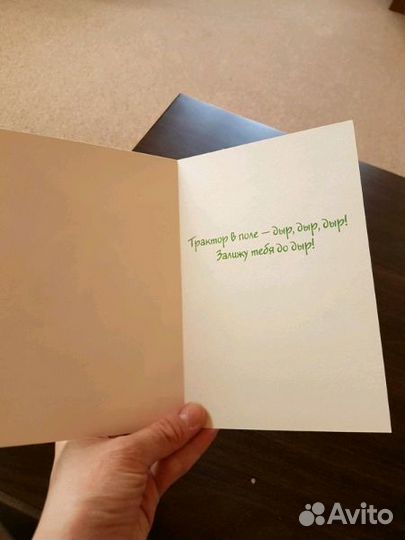 Трактор в поле — дыр, дыр, дыр!
Залижу тебя до дыр!
Avito